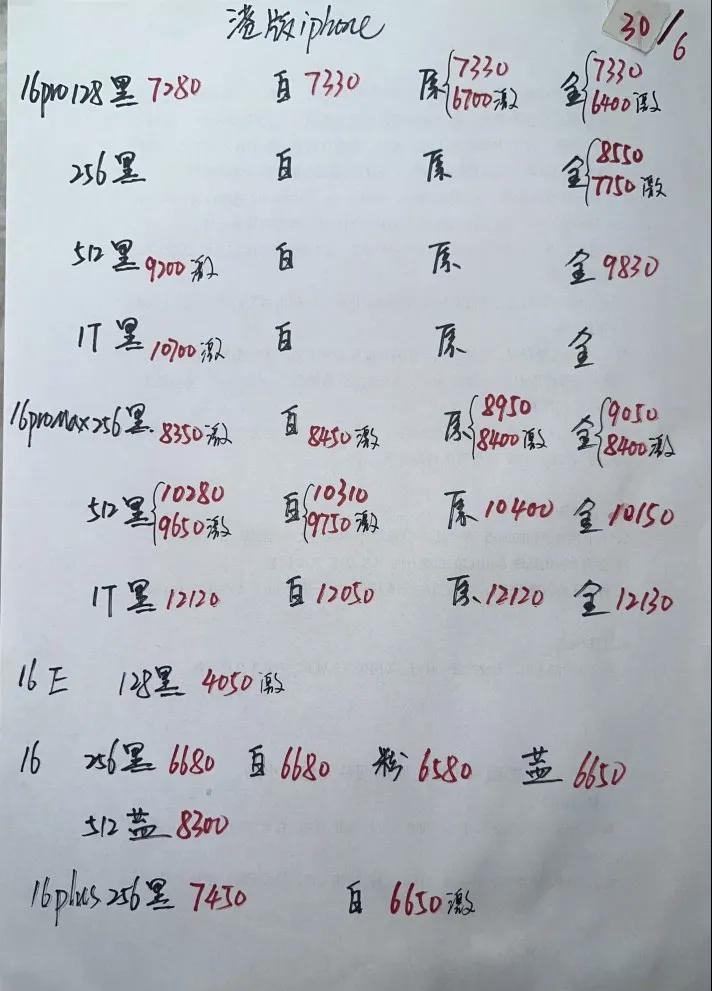 港版iphone 30/6
16pro128黑 7280 白 7330 原{7330 6700激 金{7330 6400激
256黑 白 原 金{8550 7750激
512黑 9200激 白 原 金 9830
1T黑 10700激 白 原 金
16promax256黑 8350激 白 8450激 原{8950 8400激 金{9050 8400激
512黑{10280 9650激 白{10310 9750激 原 10400 金 10150
1T黑 12120 白 12050 原 12120 金 12130
16E 128黑 4050激
16 256黑 6680 白 6680 粉 6580 蓝 6650
512蓝 8300
16plus256黑 7450 白 6650激